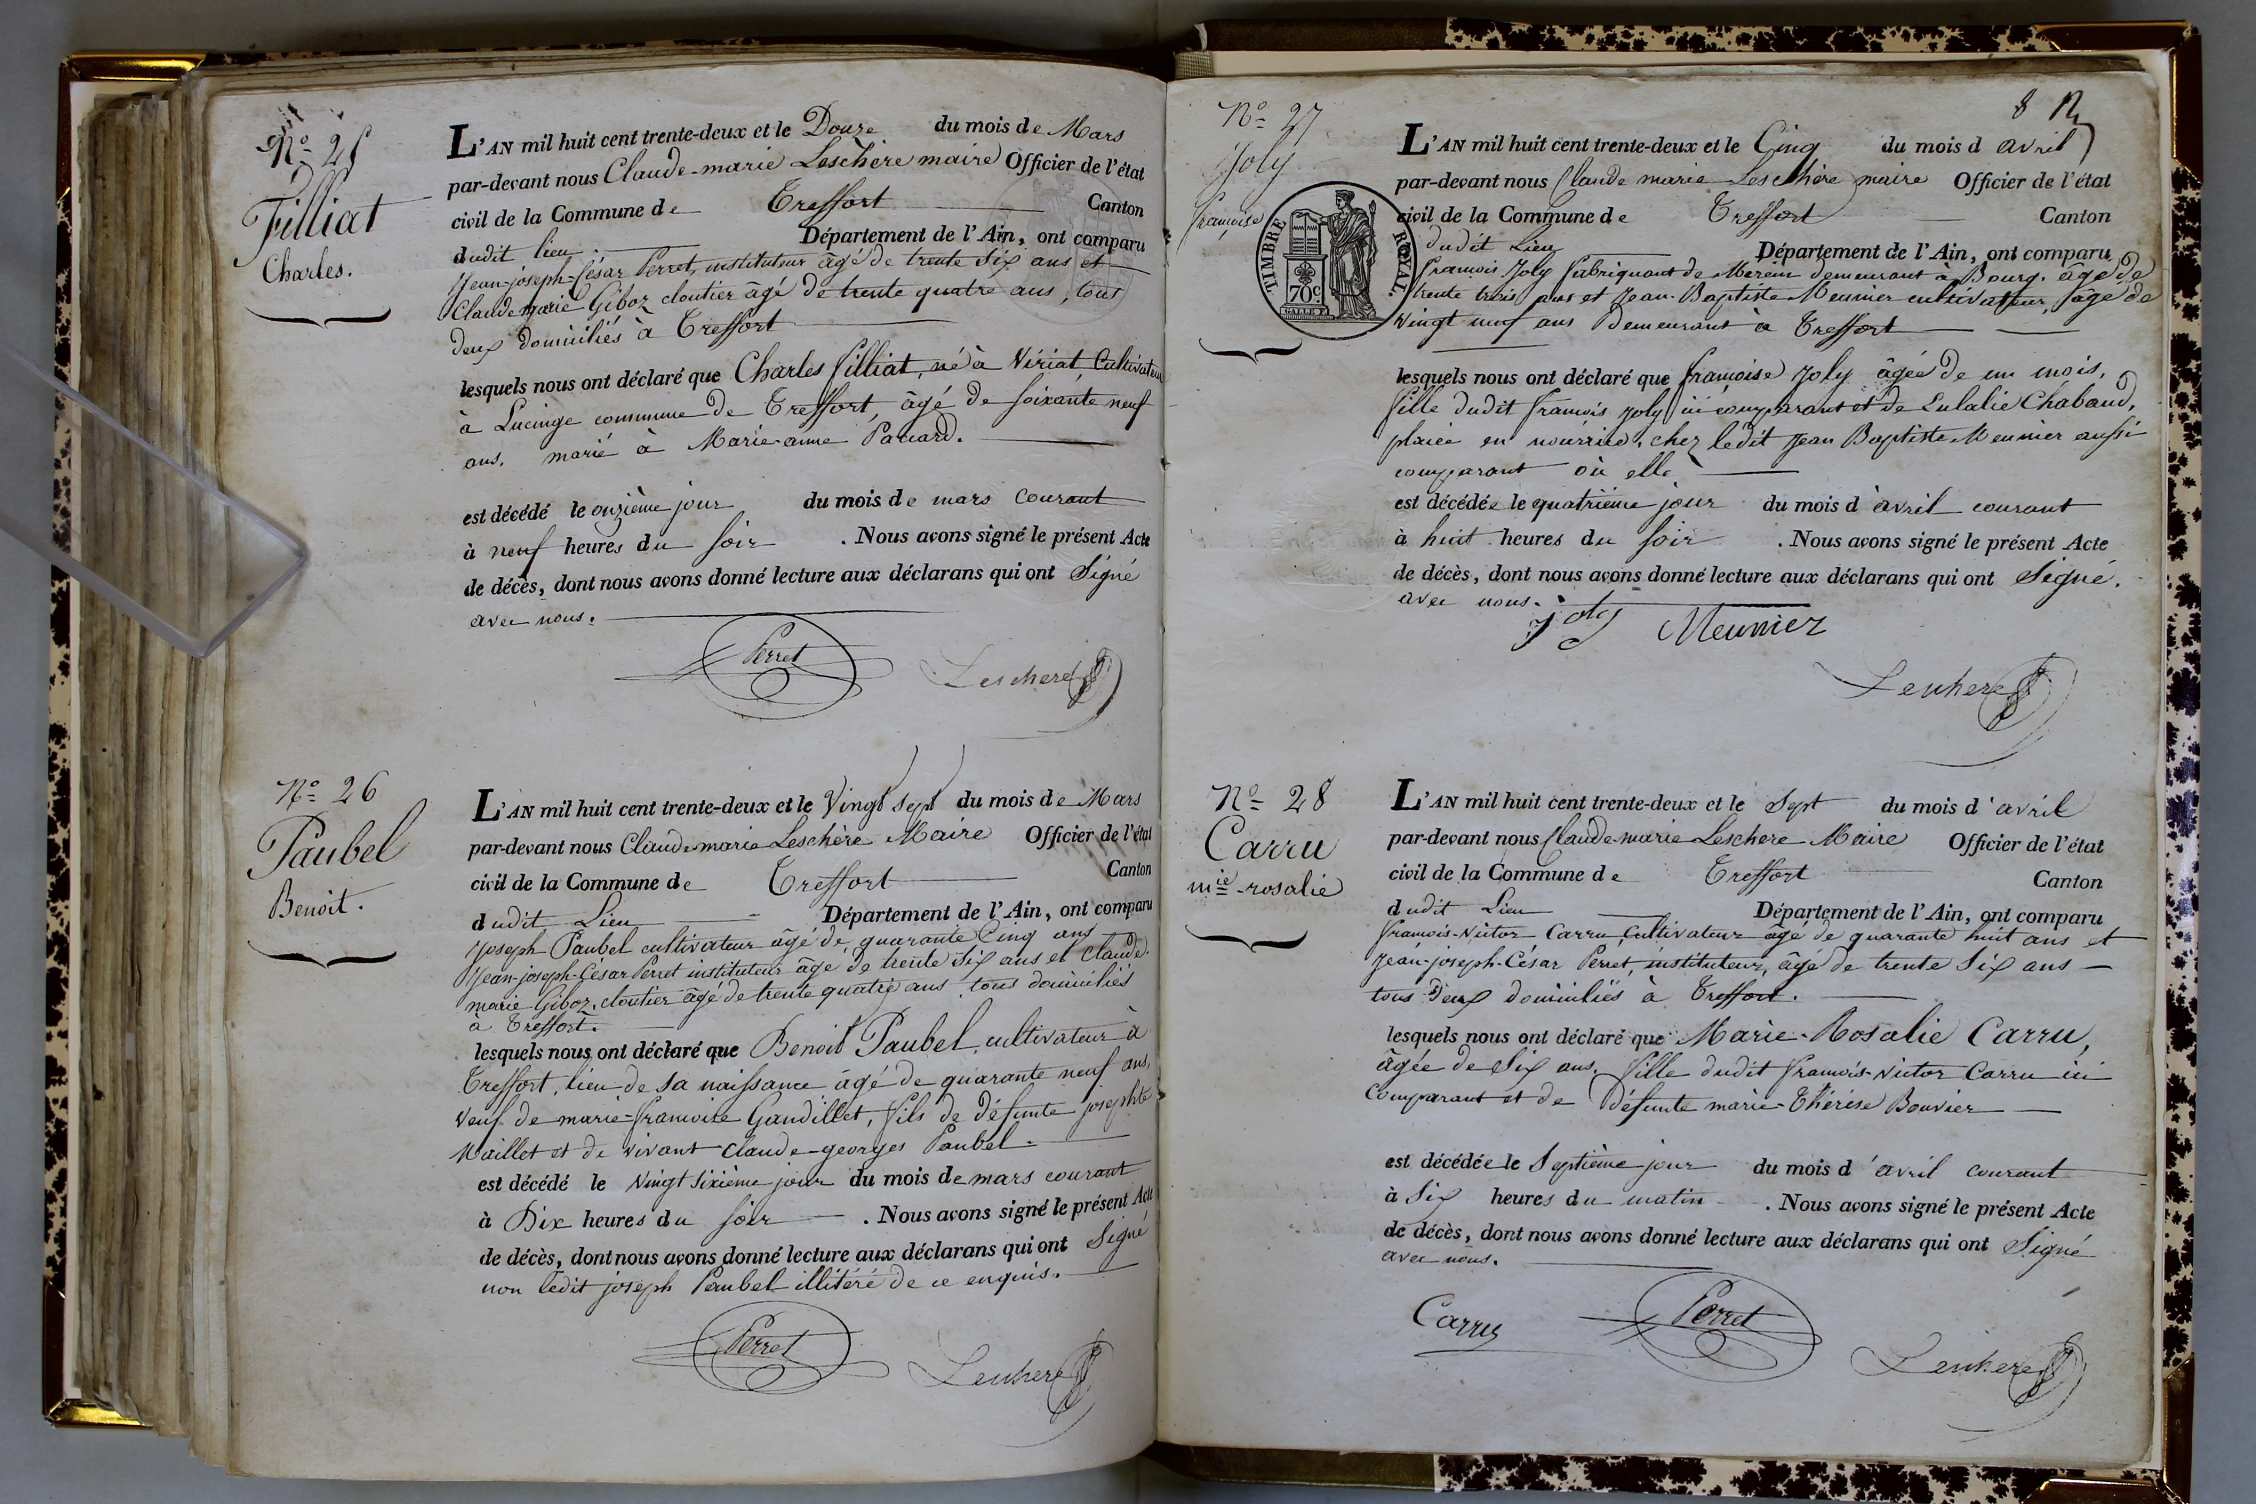 Nº 25
Filliat
Charles.
L'AN mil huit cent trente-deux et le Douze du mois de Mars
par-devant nous Claude-marie Leschère maire Officier de l'état
civil de la Commune de Treffort Canton
dudit lieu Département de l'Ain, ont comparu
Jean-joseph-César Perret, instituteur âgé de trente six ans et
Claude marie Giboz cloutier âgé de trente quatre ans, tous
deux domiciliés à Treffort
lesquels nous ont déclaré que Charles filliat, né à Viriat, Cultivateur
à Lucinge commune de Treffort, âgé de soixante neuf
ans, marié à Marie-anne Pauard.
est décédé le onzième jour du mois de mars courant
à neuf heures du soir . Nous avons signé le présent Acte
de décès, dont nous avons donné lecture aux déclarans qui ont Signé
avec nous.
Perret Leschere
Nº 26
Paubel
Benoit.
L'AN mil huit cent trente-deux et le Vingt sept du mois de Mars
par-devant nous Claude marie Leschère Maire Officier de l'état
civil de la Commune de Treffort Canton
dudit Lieu Département de l'Ain, ont comparu
Joseph Paubel cultivateur âgé de quarante Cinq ans
Jean-joseph-César Perret instituteur âgé de trente six ans et Claude-
marie Giboz, cloutier âgé de trente quatre ans tous domiciliés
à Treffort.
lesquels nous ont déclaré que Benoit Paubel, cultivateur à
Treffort, lieu de sa naissance âgé de quarante neuf ans,
veuf de marie-francoise Gandillet, fils de défunte josephte
Maillet et de vivant Claude-georges Paubel.
est décédé le Vingt sixième jour du mois de mars courant
à Dix heures du soir . Nous avons signé le présent Acte
de décès, dont nous avons donné lecture aux déclarans qui ont Signé
non ledit joseph Paubel illitéré de ce enquis.
Perret Leschere
8
Nº 27
Joly
françoise
TIMBRE ROYAL.
70c
L'AN mil huit cent trente-deux et le Cinq du mois d avril
par-devant nous Claude marie Leschère maire Officier de l'état
civil de la Commune de Treffort Canton
dudit Lieu Département de l'Ain, ont comparu
francois Joly fabriquant de Merein demeurant à Bourg, âgé de
trente trois ans et Jean-Baptiste Meunier cultivateur, âgé de
vingt neuf ans Demeurant à Treffort
lesquels nous ont déclaré que francoise Joly âgée de un mois,
fille dudit francois Joly ici comparant et de Eulalie Chabaud,
placée en nourrice, chez ledit Jean Baptiste Meunier aussi
comparant où elle
est décédée le quatrième jour du mois d'avril courant
à huit heures du soir . Nous avons signé le présent Acte
de décès, dont nous avons donné lecture aux déclarans qui ont Signé.
avec nous.
joly Meunier
Leschere
Nº 28
Carru
mie-rosalie
L'AN mil huit cent trente-deux et le Sept du mois d'avril
par-devant nous Claude-marie Leschere Maire Officier de l'état
civil de la Commune de Treffort Canton
dudit Lieu Département de l'Ain, ont comparu
francois-Victor Carru, Cultivateur âgé de quarante huit ans et
Jean-joseph-César Perret, instituteur, âgé de trente six ans
tous deux domiciliés à Treffort.
lesquels nous ont déclaré que Marie-Rosalie Carru,
âgée de six ans. fille dudit francois-Victor Carru ici
Comparant et de défunte marie-Thérèse Bouvier
est décédée le Septième jour du mois d'avril courant
à Six heures du matin . Nous avons signé le présent Acte
de décès, dont nous avons donné lecture aux déclarans qui ont Signé
avec nous.
Carru Perret Leschere